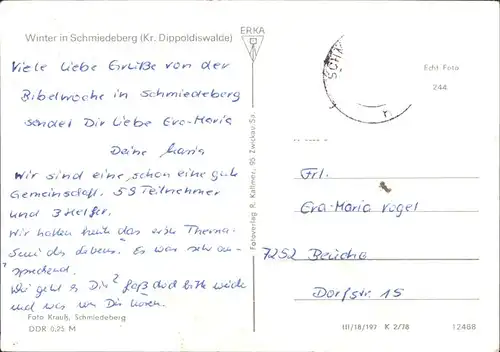 Winter in Schmiedeberg (Kr. Dippoldiswalde)
Viele liebe Grüße von der
Bibelwoche in Schmiedeberg
sendet Dir liebe Eva-Maria
Deine Maria
Wir sind eine, schon eine gute
Gemeinschaft. 59 Teilnehmer
und 3 Helfer.
Wir hatten heute das erste Thema.
des Lebens. Es war sehr an-
sprechend.
Wie geht es Dir? laß doch bitte wieder
und was von Dir hören.
Foto Krauß, Schmiedeberg
DDR 0,25 M
ERKA
Fotoverlag R. Kallmer, 95 Zwickau/Sa.
Echt Foto
244
Frl.
Eva-Maria Vogel
7252 Beucha
Dorfstr. 15
III/18/197 K 2/78
12468